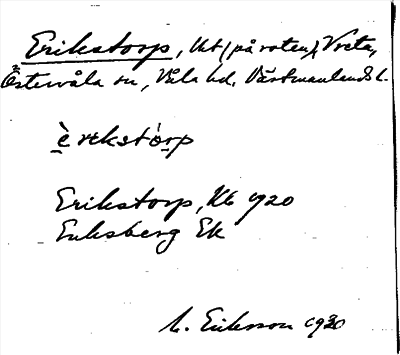 Erikstorp, Ut (på roten), Vreta,
Östervåla sn, Våla hd, Västmanlands l.
è rɩkstòrp
Erikstorp, Kb 1920
Eriksberg Ek
M. Eriksson 1930